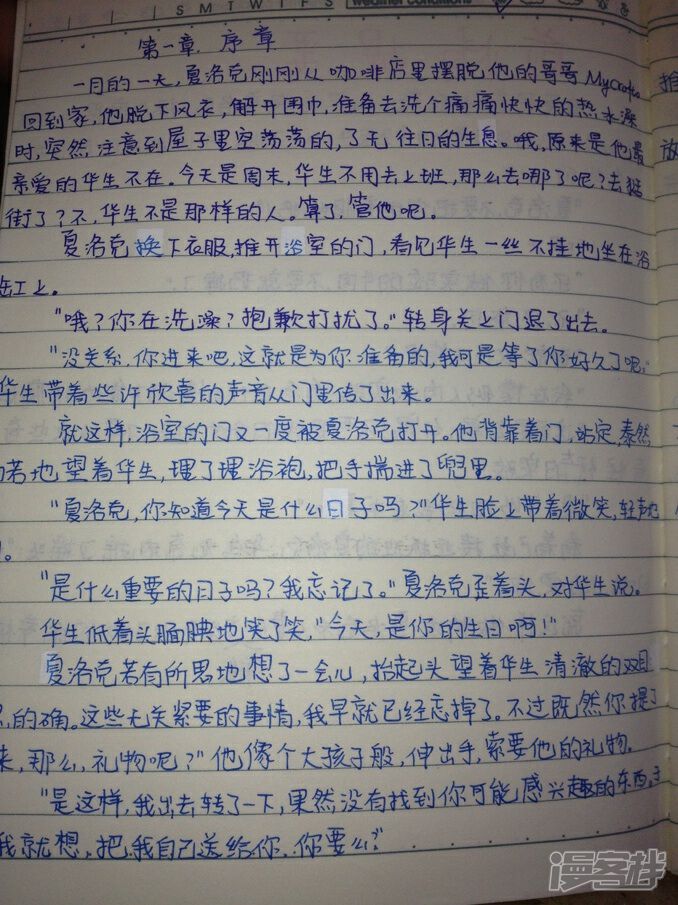 S M T W T F S weather conditions
第一章. 序章
一月的一天,夏洛克刚刚从咖啡店里摆脱他的哥哥Mycroft
回到家,他脱下风衣,解开围巾,准备去洗个痛痛快快的热水澡
时,突然注意到屋子里空荡荡的,了无往日的生息。哦,原来是他最
亲爱的华生不在。今天是周末,华生不用去上班,那么去哪了呢?去逛
街了?不,华生不是那样的人。算了,管他呢。
夏洛克换下衣服,推开浴室的门,看见华生一丝不挂地坐在浴
缸上。
"哦?你在洗澡?抱歉打扰了。"转身关上门退了出去。
"没关系,你进来吧,这就是为你准备的,我可是等了你好久了呢。"
华生带着些许欣喜的声音从门里传了出来。
就这样,浴室的门又一度被夏洛克打开。他背靠着门,站定,泰然
若地望着华生,理了理浴袍,把手揣进了兜里。
"夏洛克,你知道今天是什么日子吗?"华生脸上带着微笑,轻声地
"是什么重要的日子吗?我忘记了。"夏洛克歪着头,对华生说。
华生低着头腼腆地笑了笑,"今天,是你的生日啊!"
夏洛克若有所思地想了一会儿,抬起头望着华生清澈的双目
的确。这些无关紧要的事情,我早就已经忘掉了。不过既然你提了
来,那么,礼物呢?"他像个大孩子般,伸出手,索要他的礼物。
"是这样,我出去转了一下,果然没有找到你可能感兴趣的东西,于
我就想,把我自己送给你,你要么?"
推
放
漫客栈